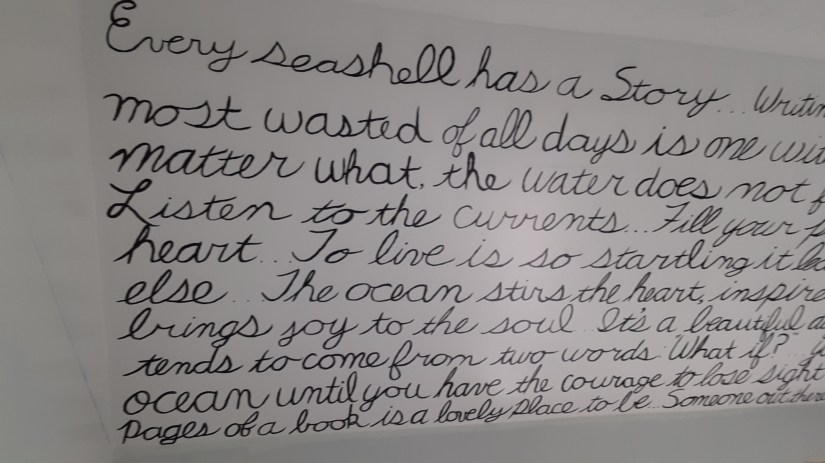 Every seashell has a Story... Writin
most wasted of all days is one wit
matter what, the water does not f
Listen to the currents... Fill your p
heart... To live is so startling it le
else... The ocean stirs the heart, inspire
brings joy to the soul... It's a beautiful d
tends to come from two words "What if?"...
ocean until you have the courage to lose sight
Pages of a book is a lovely place to be... Someone out there